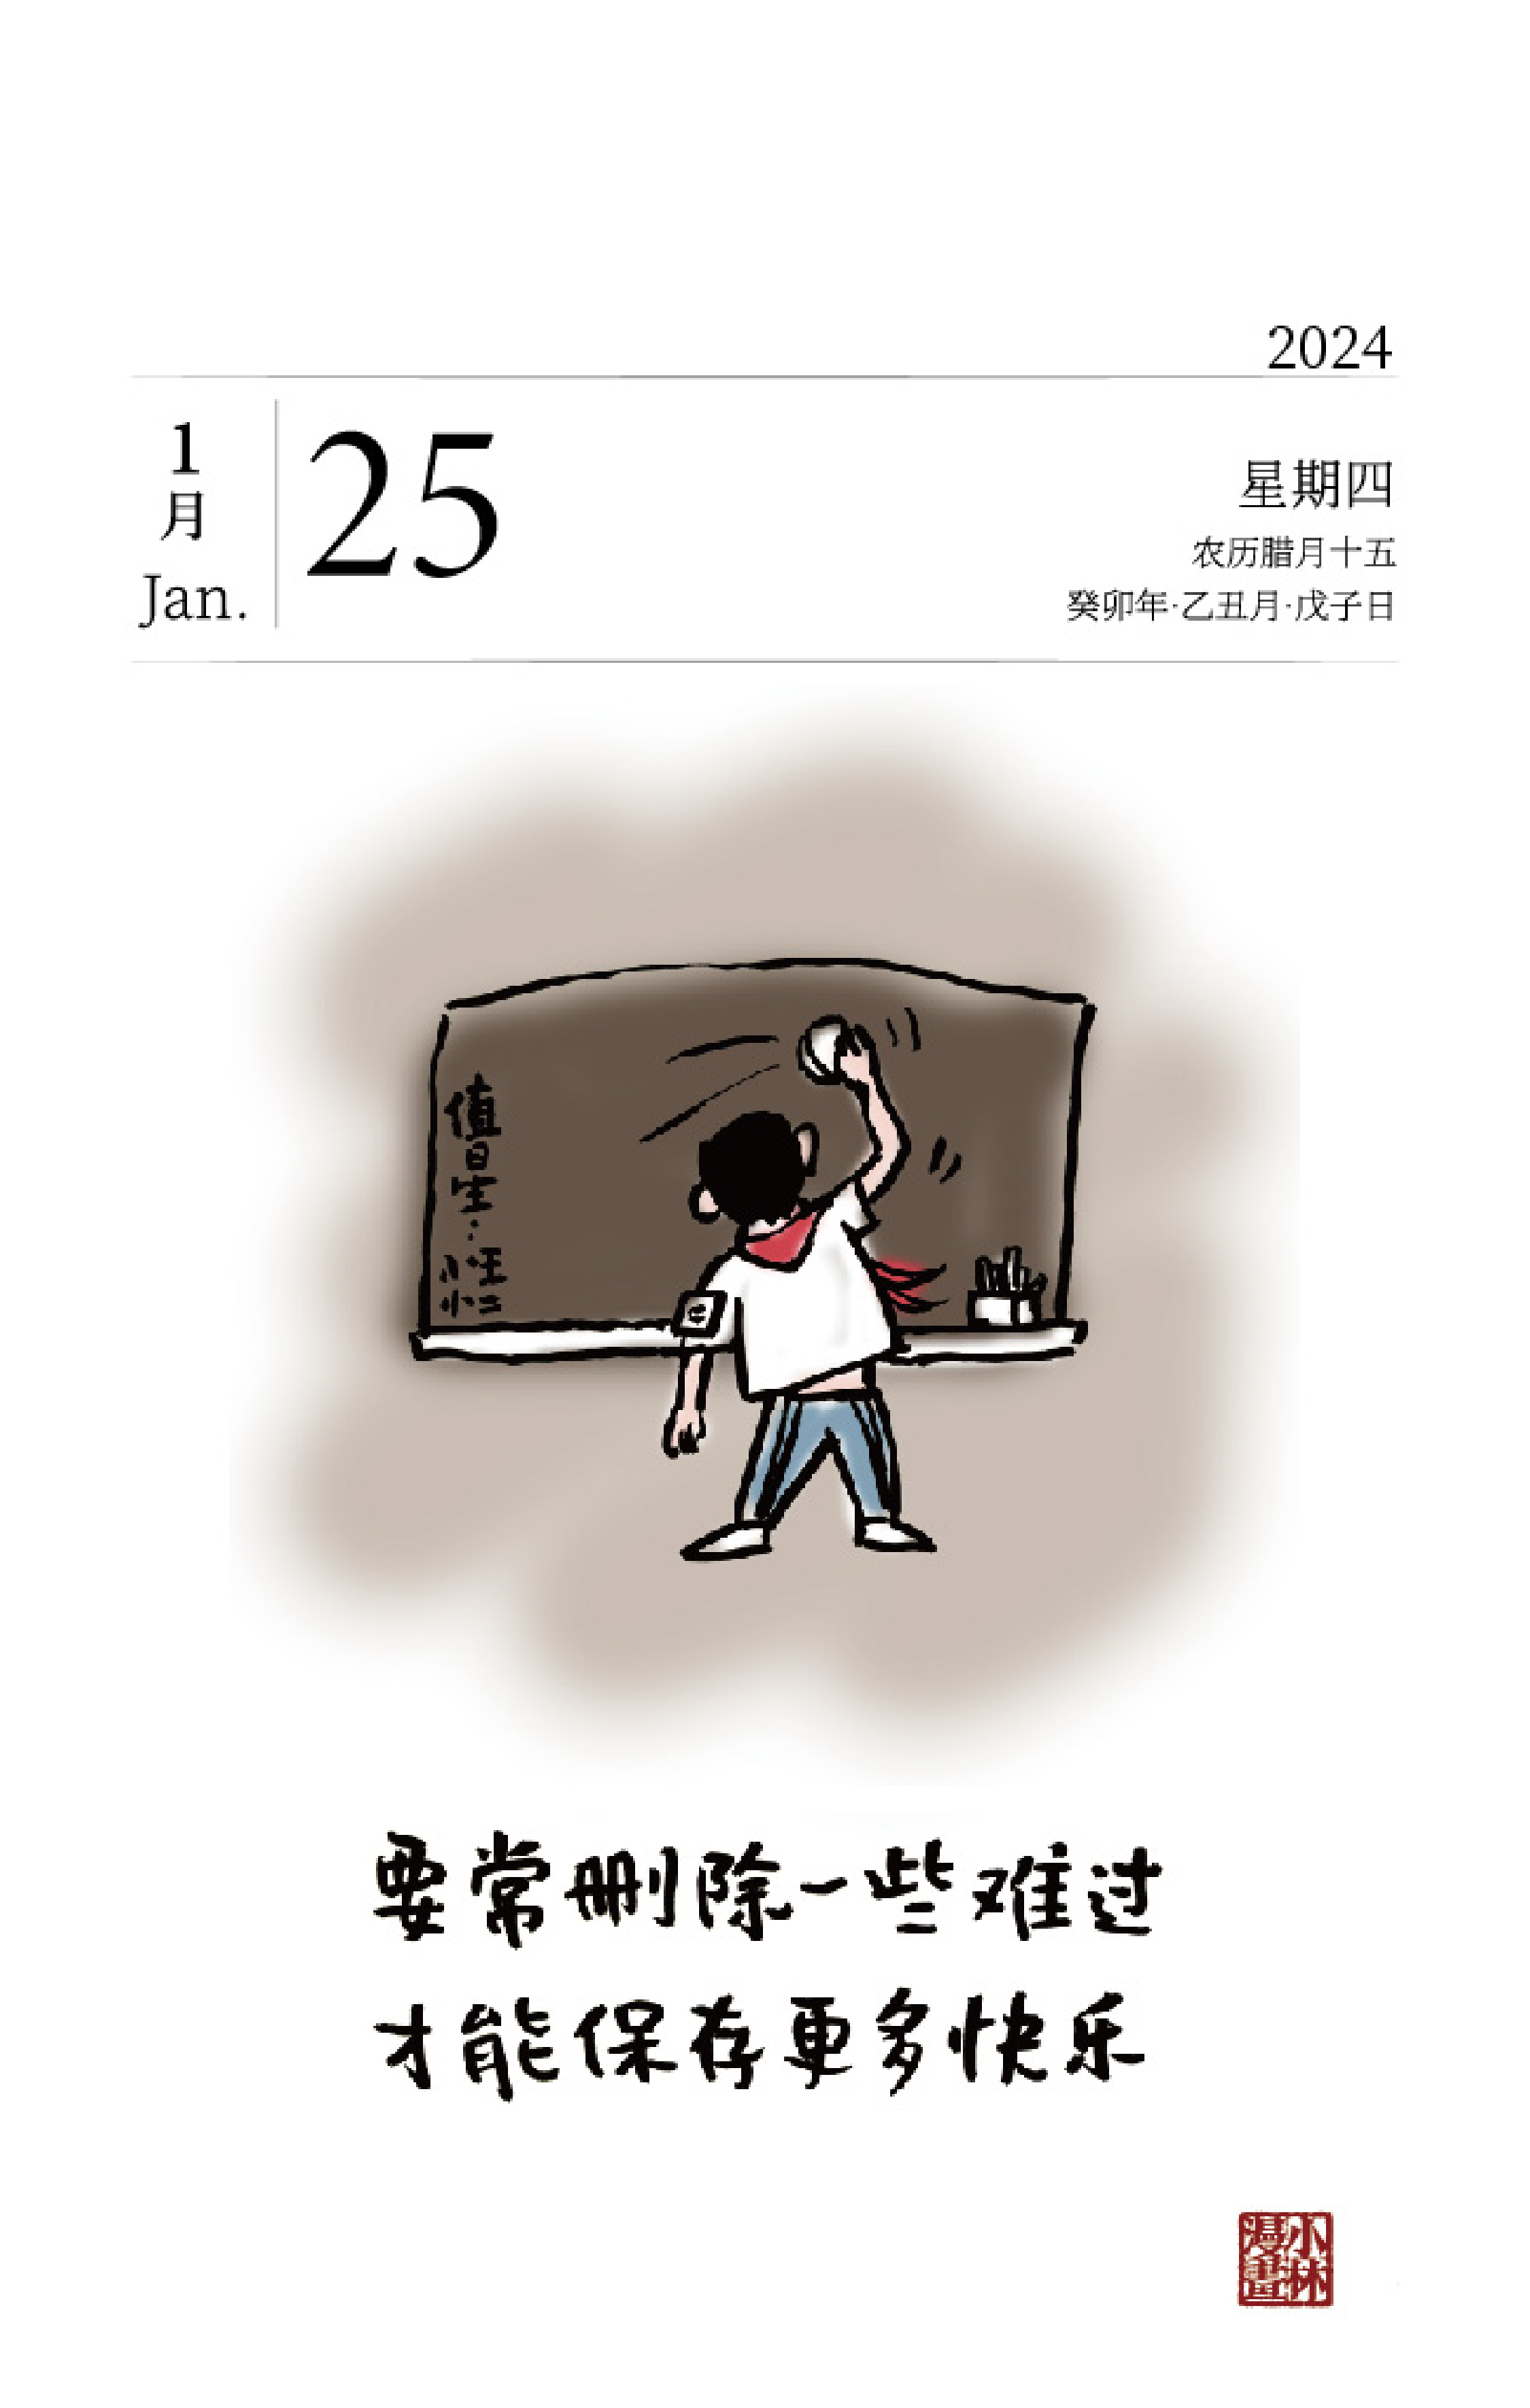 2024
1
月
Jan.
25
星期四
农历腊月十五
癸卯年·乙丑月·戊子日
值日生:
小王
小二
要常删除一些难过
才能保存更多快乐
小林
漫畫